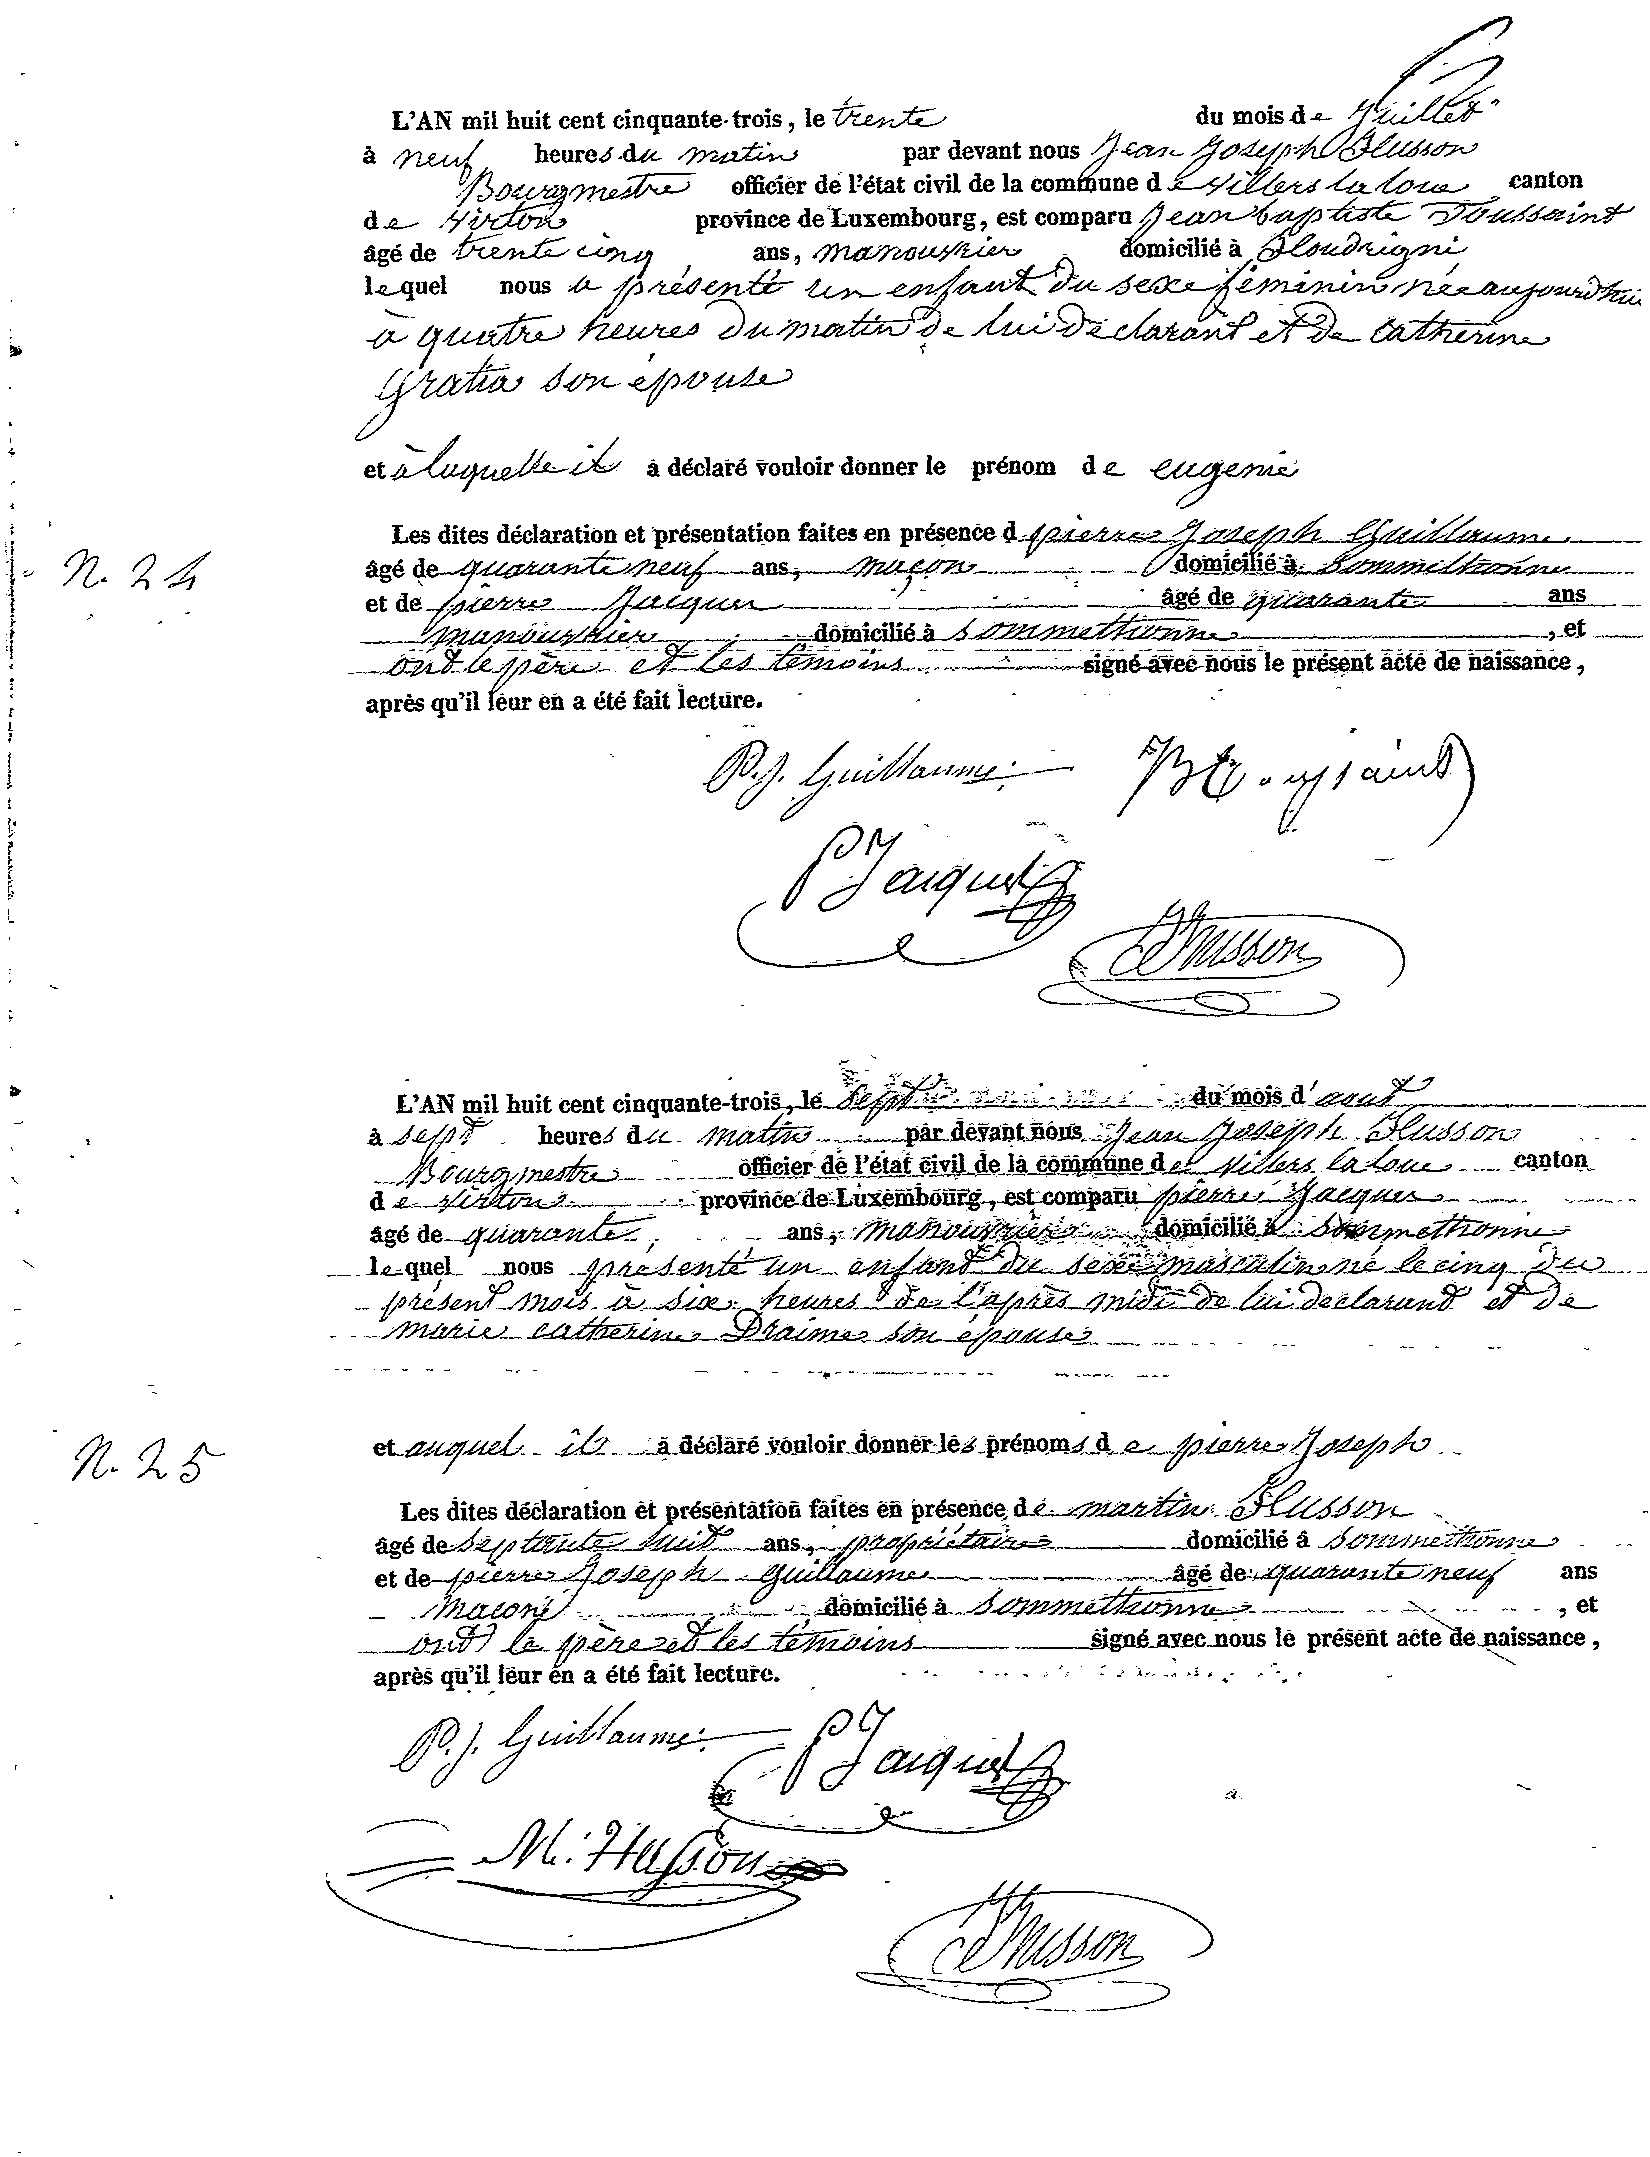 L'AN mil huit cent cinquante-trois, le trente du mois de Juillet
à neuf heures du matin par devant nous Jean Joseph Husson
Bourgmestre officier de l'état civil de la commune de Villers la loue canton
de Virton province de Luxembourg, est comparu Jean baptiste Toussaint
âgé de trente cinq ans, manouvrier domicilié à Houdrigni
lequel nous a présenté un enfant du sexe féminin née aujourdhui
à quatre heures du matin de lui déclarant et de Catherine
Gratia son épouse
et à laquelle il a déclaré vouloir donner le prénom de eugenie
N. 24
Les dites déclaration et présentation faites en présence d pierre Joseph Guillaume
âgé de quarante neuf ans, maçon domicilié à Sommethonne
et de pierre Jacques âgé de quarante ans
manouvrier domicilié à Sommethonne, et
ont le père et les témoins signé avec nous le présent acte de naissance,
après qu'il leur en a été fait lecture.
P. J. Guillaume
PJacques
Husson
L'AN mil huit cent cinquante-trois, le Sept du mois d'aout
à sept heures du matin par devant nous Jean Joseph Husson
Bourgmestre officier de l'état civil de la commune de Villers la loue canton
de Virton province de Luxembourg, est comparu pierre Jacques
âgé de quarante ans, manouvrier domicilié à Sommethonne
lequel nous présenté un enfant du sexe masculin né le cinq du
présent mois à six heures de l'après midi de lui declarant et de
marie catherine Draime son épouse
et auquel il a déclaré vouloir donner les prénoms de pierre Joseph
N. 25
Les dites déclaration et présentation faites en présence de martin Husson
âgé de septante huit ans, propriétaire domicilié à Sommethonne
et de pierre Joseph Guillaume âgé de quarante neuf ans
macon domicilié à Sommethonne, et
ont le père et les témoins signé avec nous le présent acte de naissance,
après qu'il leur en a été fait lecture.
P. J. Guillaume
PJacques
M. Husson
Husson